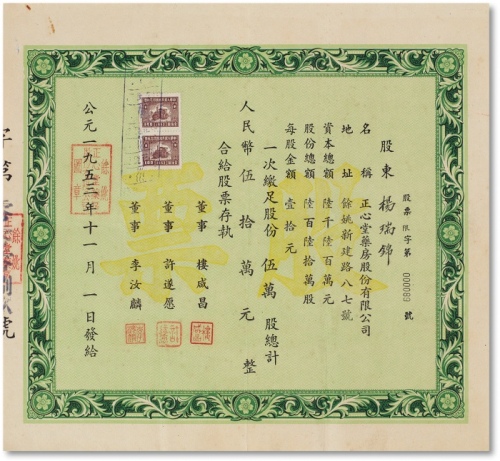 股票 限字第 000083 號
股東 楊瑞錦
名稱 正心堂藥房股份有限公司
地址 餘姚新建路八七號
資本總額 陸千陸百萬元
股份總額 陸百陸拾萬股
每股金額 壹拾元
一次繳足股份 伍萬 股總計
人民幣 伍拾萬元 整
合給股票存執
董事 樓咸昌
董事 許遂愿
董事 李汝麟
公元一九五三年十一月一日發給
股票
字第
號